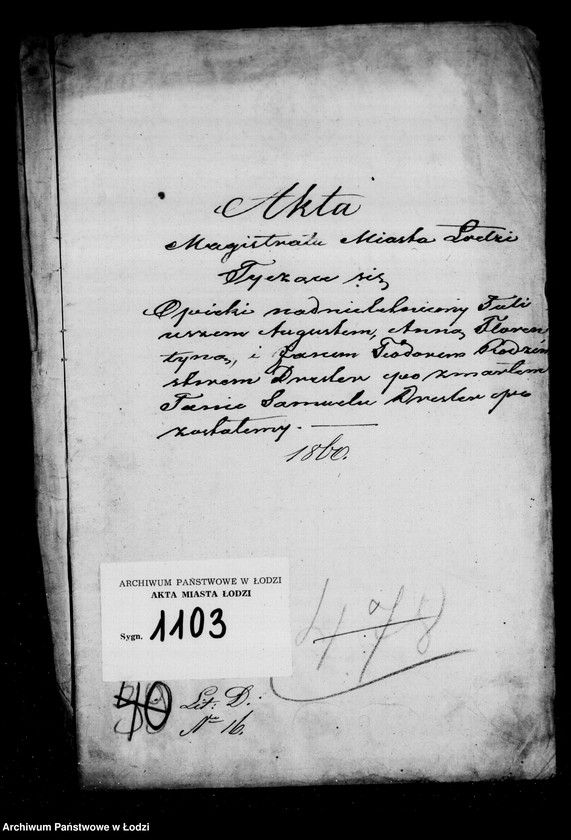 Akta
Magistratu Miasta Łodzi
Tyczące się
Opieki nad nieletniemi Juli
uszem Augustem, Anną Floren
tyną, i Janem Teodorem Rodzeń
stwem Drexler po zmarłem
Janie Samuelu Drexler po
zostałemy.
1860.
ARCHIWUM PAŃSTWOWE W ŁODZI
AKTA MIASTA ŁODZI
Sygn. 1103
478
Lit. D.
No 16.
Archiwum Państwowe w Łodzi